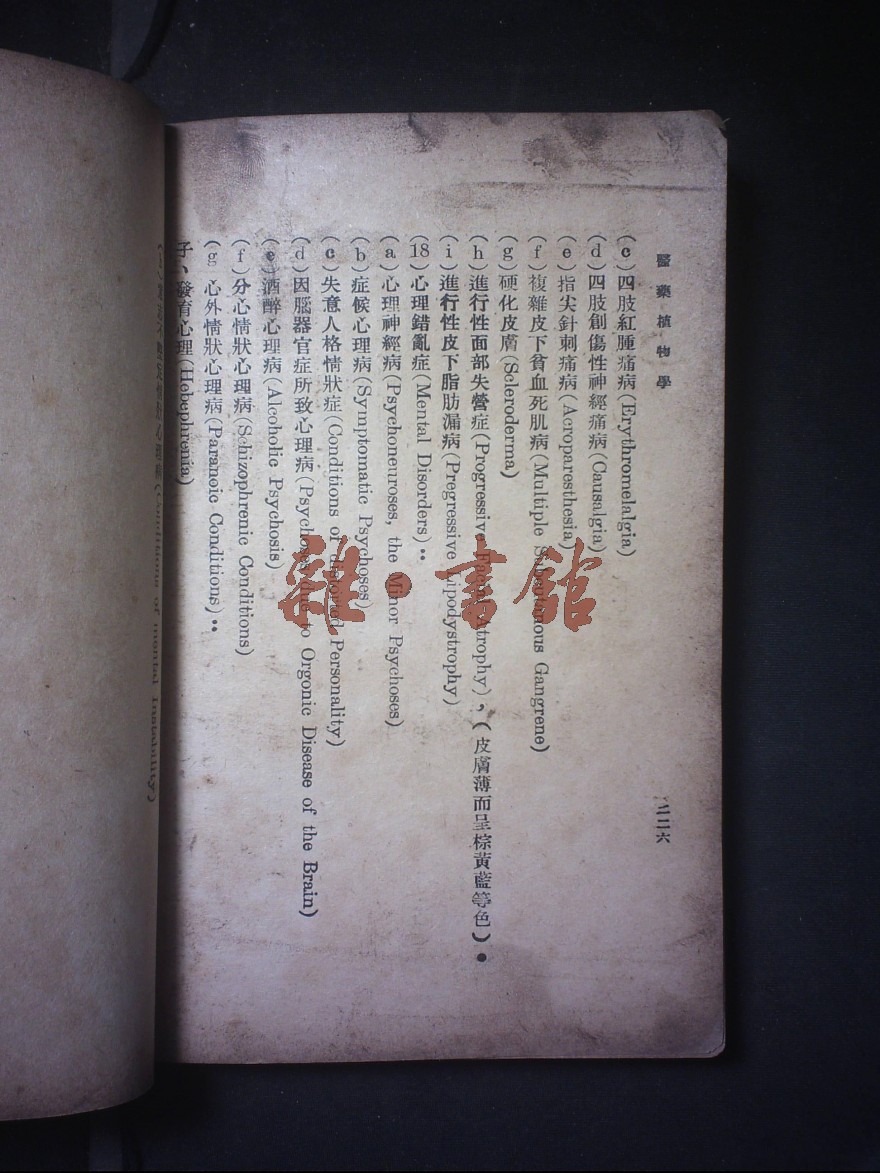 醫藥植物學
二二六
(c)四肢紅腫痛病(Erythromelalgia)
(d)四肢創傷性神經痛病(Causalgia)
(e)指尖針刺痛病(Acroparesthesia)
(f)複雜皮下貧血死肌病(Multiple Subcutanous Gangrene)
(g)硬化皮膚(Scleroderma)
(h)進行性面部失營症(Progressive Facial Atrophy),(皮膚薄而呈棕黃藍等色)•
(i)進行性皮下脂肪漏病(Pregressive Lipodystrophy)
(18)心理錯亂症(Mental Disorders)••
(a)心理神經病(Psychoneuroses, the Minor Psychoses)
(b)症候心理病(Symptomatic Psychoses)
(c)失意人格情狀症(Conditions of distorted Personality)
(d)因腦器官症所致心理病(Psychoses due to Orgonic Disease of the Brain)
(e)酒醉心理病(Alcoholic Psychosis)
(f)分心情狀心理病(Schizophrenic Conditions)
(g 心外情狀心理病(Paranoic Conditions)••
子、發育心理(Hebephrenia)
心理病(Conditions of mental Instability)
雜·書館